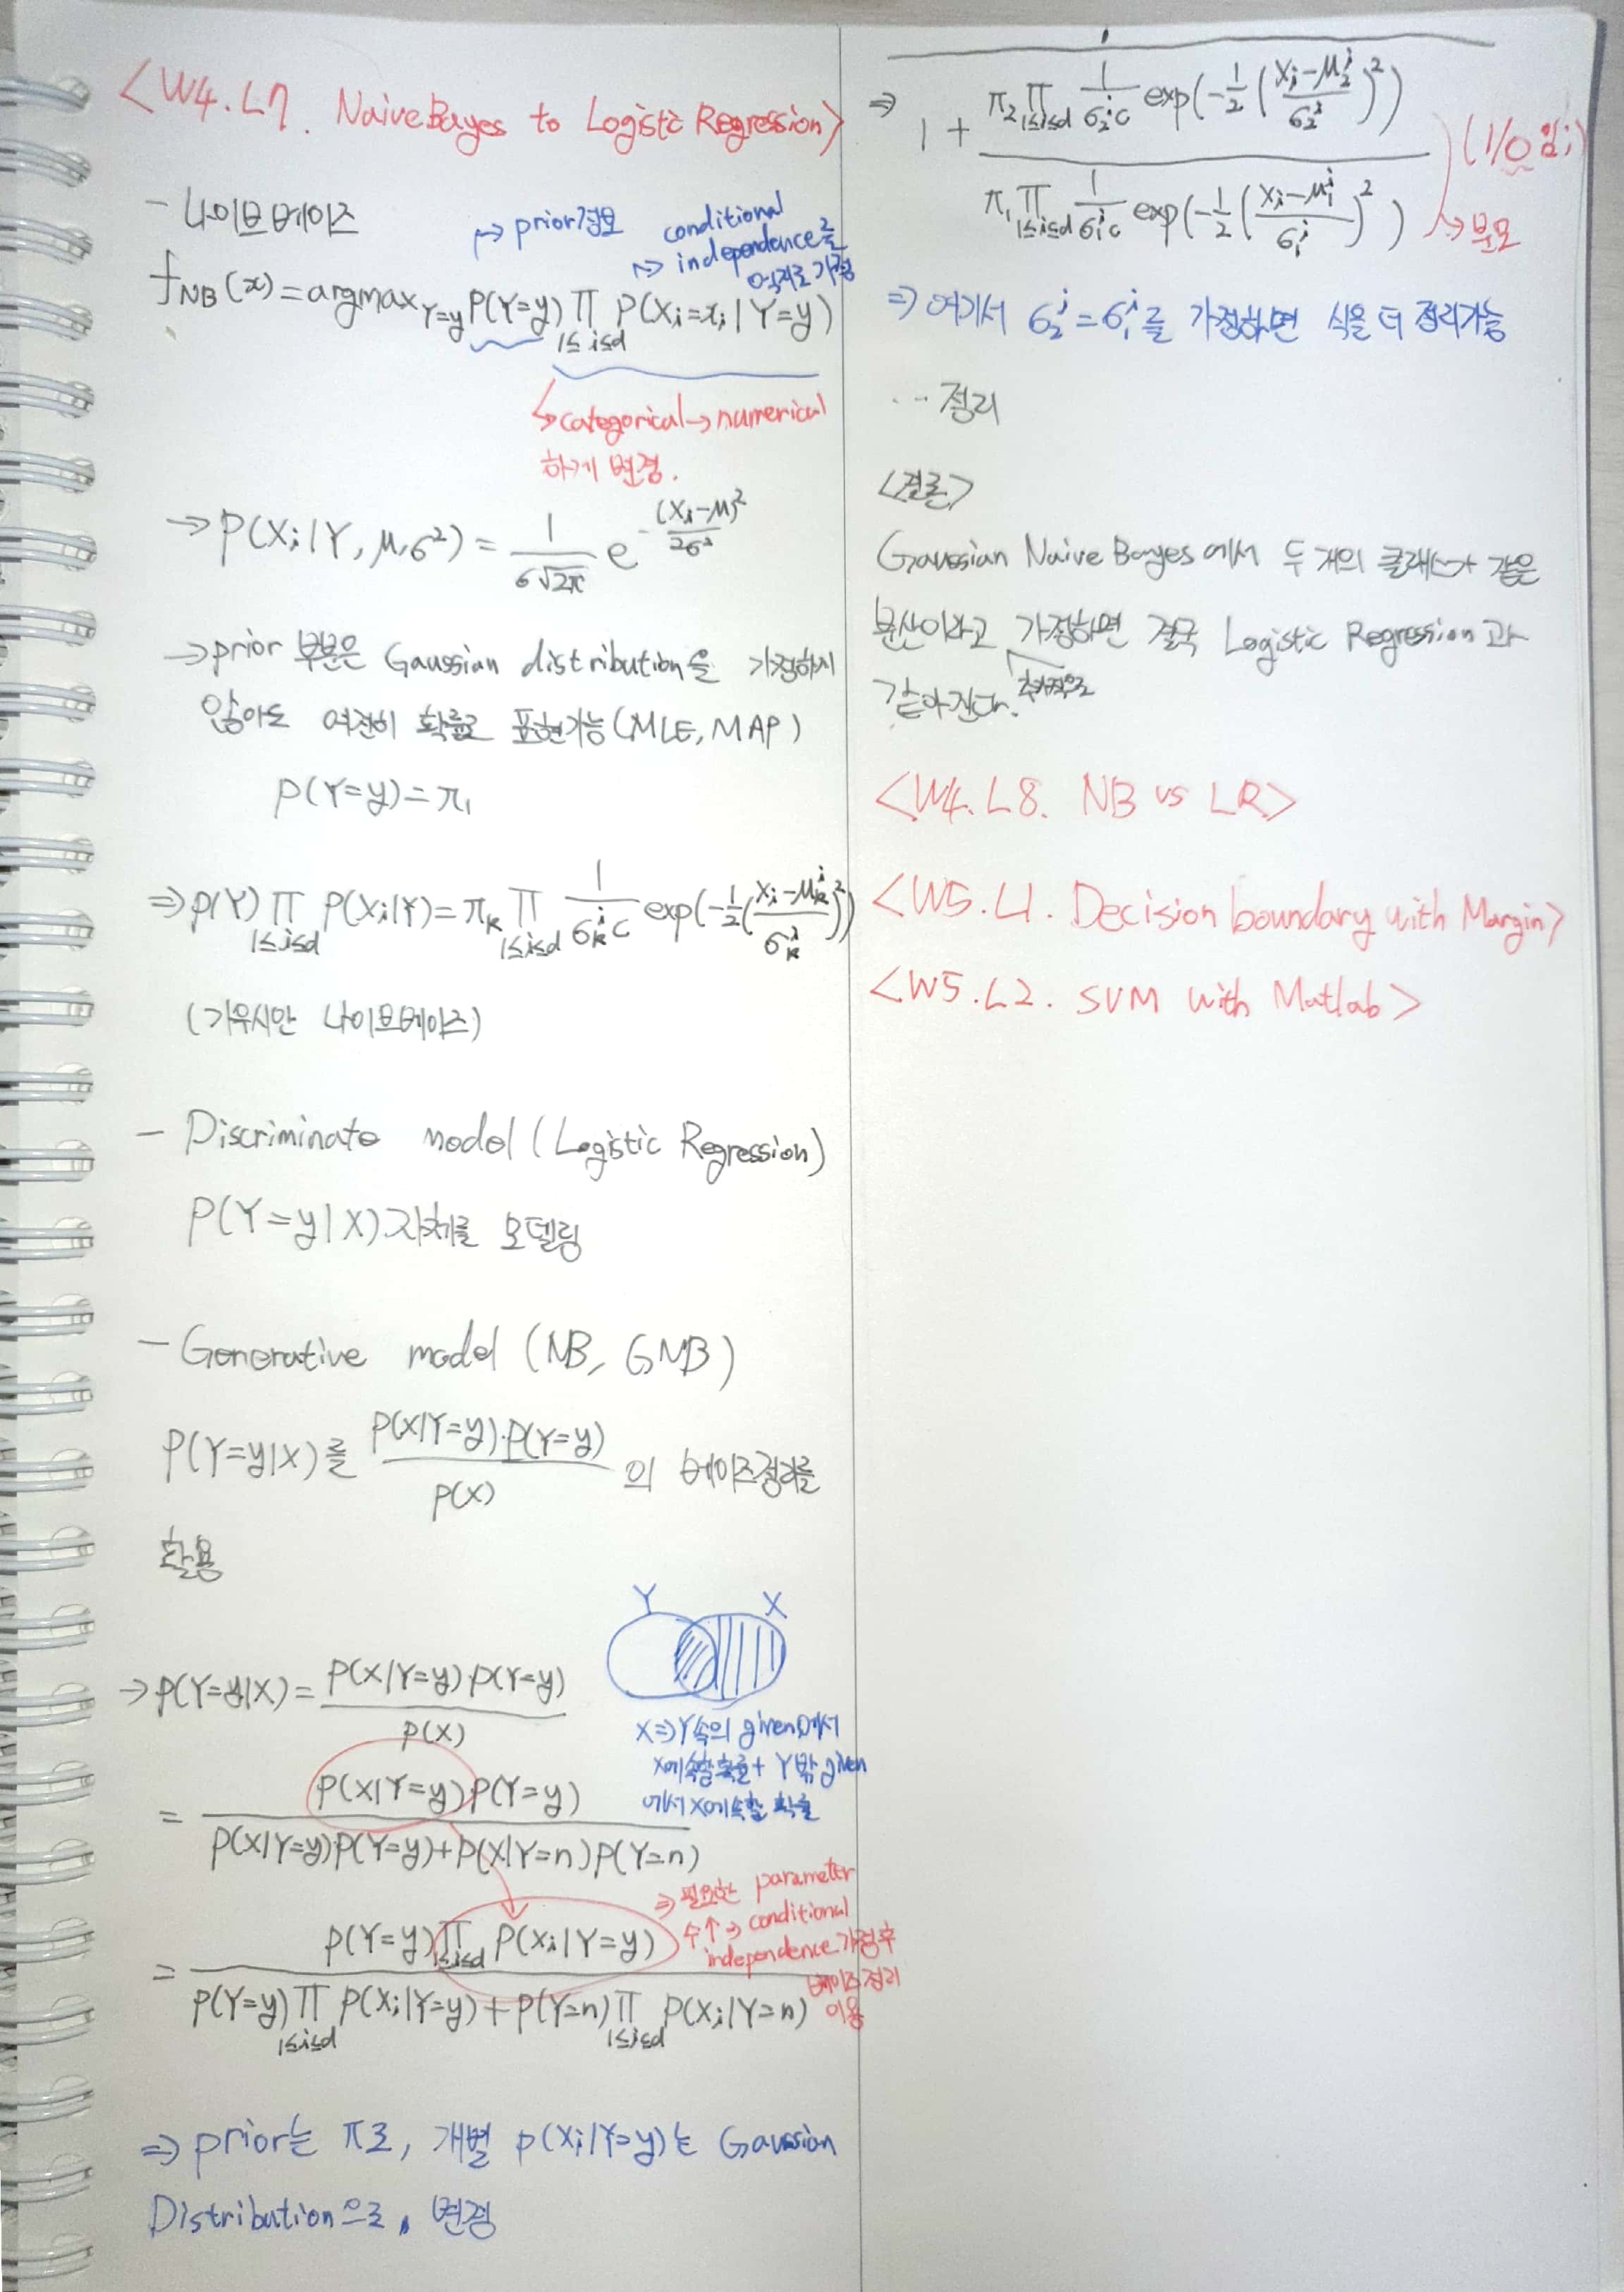 <W4.L7. Naive Bayes to Logistic Regression>
- 나이브 베이즈
↦ prior정보
conditional
↦ independence를
억지로 가정
f_NB(x) = argmax_{Y=y} P(Y=y) ∏_{1≤i≤d} P(X_i=x_i | Y=y)
↳ categorical → numerical
하게 변경.
→ P(X_i | Y, μ, σ²) = 1/(σ√2π) e^{-(X_i-μ)²/2σ²}
→ prior 부분은 Gaussian distribution을 가정하지
않아도 여전히 확률로 표현가능 (MLE, MAP)
P(Y=y) = π₁
⇒ P(Y) ∏_{1≤i≤d} P(X_i|Y) = π_k ∏_{1≤i≤d} 1/(σ_k^i C) exp(-1/2((X_i-μ_k^i)/σ_k^i)²)
(가우시안 나이브베이즈)
- Discriminate model (Logistic Regression)
P(Y=y|X) 자체를 모델링
- Generative model (NB, GNB)
P(Y=y|X)를 P(X|Y=y)·P(Y=y)/P(X) 의 베이즈정리를
활용
Y X
→ P(Y=y|X) = P(X|Y=y)·P(Y=y)/P(X)
X ⇒ Y속의 given에서
X에 속할 확률 + Y밖 given
에서 X에 속할 확률
= P(X|Y=y)P(Y=y) / (P(X|Y=y)P(Y=y)+P(X|Y=n)P(Y=n))
⇒ 필요한 parameter
수↑ ⇒ conditional
independence 가정후
베이즈정리
이용
= P(Y=y) ∏_{1≤i≤d} P(X_i|Y=y) / (P(Y=y) ∏_{1≤i≤d} P(X_i|Y=y) + P(Y=n) ∏_{1≤i≤d} P(X_i|Y=n))
⇒ prior는 π로, 개별 P(X_i|Y=y)는 Gaussian
Distribution으로 변경
⇒ 1 / (1 + (π₂ ∏_{1≤i≤d} 1/(σ₂^i C) exp(-1/2((X_i-μ₂^i)/σ₂^i)²)) / (π₁ ∏_{1≤i≤d} 1/(σ₁^i C) exp(-1/2((X_i-μ₁^i)/σ₁^i)²)))
↳ 분모
⇒ 여기서 σ₂^i = σ₁^i 를 가정하면 식을 더 정리가능
… 정리
<결론>
Gaussian Naive Bayes 에서 두 개의 클래스가 같은
분산이라고 가정하면 결국 Logistic Regression 과
같아진다.
<W4.L8. NB vs LR>
<W5.L1. Decision boundary with Margin>
<W5.L2. SVM with Matlab>